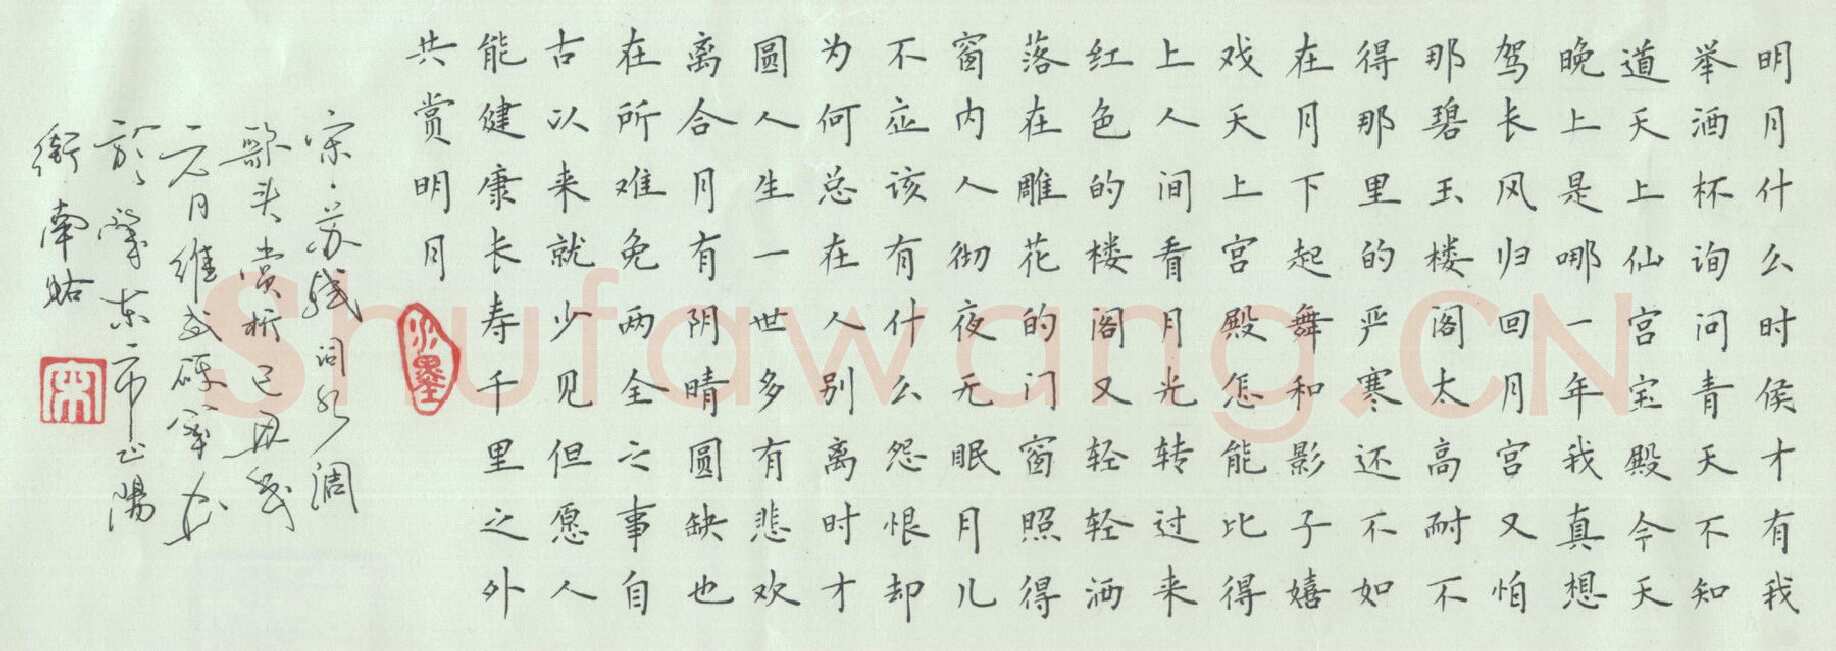 明月什么时侯才有我
举酒杯询问青天不知
道天上仙宫宝殿今天
晚上是哪一年我真想
驾长风归回月宫又怕
那碧玉楼阁太高耐不
得那里的严寒还不如
在月下起舞和影子嬉
戏天上宫殿怎能比得
上人间看月光转过来
红色的楼阁又轻轻洒
落在雕花的门窗照得
窗内人彻夜无眠月儿
不应该有什么怨恨却
为何总在人别离时才
圆人生一世多有悲欢
离合月有阴晴圆缺也
在所难免两全之事自
古以来就少见但愿人
能健康长寿千里之外
共赏明月
水墨
宋·苏轼词水调
歌头赏析己丑岁
元月维武硬笔书
於肇东市正陽
街南
Shufawang.CN